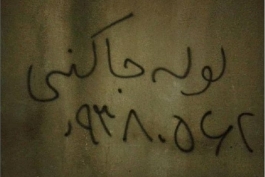 لوله جاکنی
۰۹۳۸۰۵۶۲